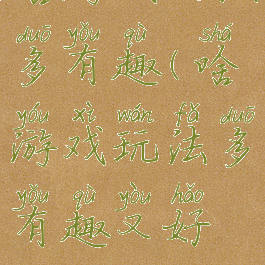 duō yǒu qù shá
多有趣(啥
yóu xì wán fǎ duō
游戏玩法多
yǒu qù yòu hǎo
有趣又好